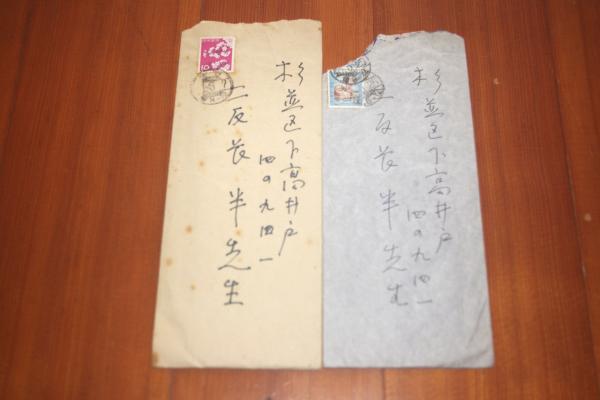 杉並区下高井戸
四の九四一
二反長半先生
10
杉並区下高井戸
四の九四一
二反長半先生